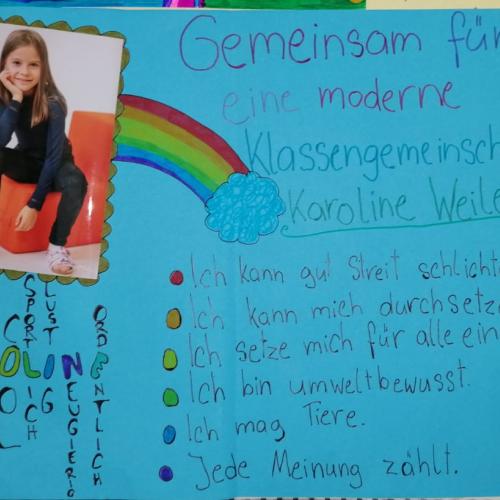 Gemeinsam für
eine moderne
Klassengemeinsch
Karoline Weile
Ich kann gut Streit schlichte
Ich kann mich durchsetze
Ich setze mich für alle ein
Ich bin umweltbewusst.
Ich mag Tiere.
Jede Meinung zählt.
COOL
SPORTLICH
LUSTIG
NEUGIERIG
ORDENTLICH